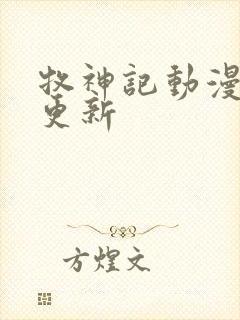 牧神記動漫
更新
方煌文